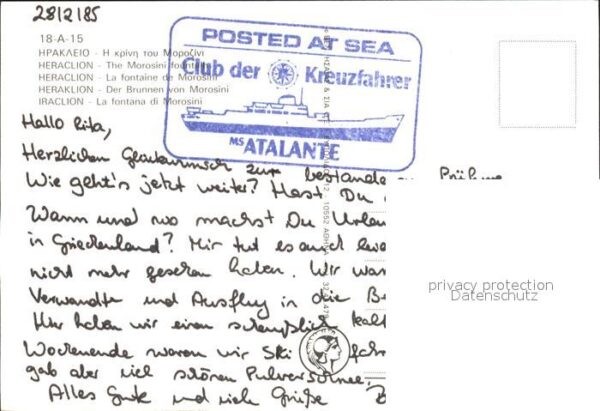 28/2/85
18-A-15
ΗΡΑΚΛΕΙΟ - Η κρίνη του Μοροζίνι
HERACLION - The Morosini fountain
HERACLION - La fontaine de Morosini
HERAKLION - Der Brunnen von Morosini
IRACLION - La fontana di Morosini
POSTED AT SEA
Club der Kreuzfahrer
MS ATALANTE
Hallo Rita,
Herzlichen Glückwunsch zur bestandenen Prüfung
Wie geht's jetzt weiter? Hast Du
Wann und wo machst Du Urlau
in Griechenland? Mir tut es auch
nicht mehr gesehen haben. Wir war
Verwandte und Ausflug in die Be
Hier haben wir einen scheußlich kalt
Wochenende waren wir Ski fahr
gab aber viel schönen Pulverschnee.
Alles Gute und viele Grüße
10552 ΑΘΗΝΑ
privacy protection
Datenschutz